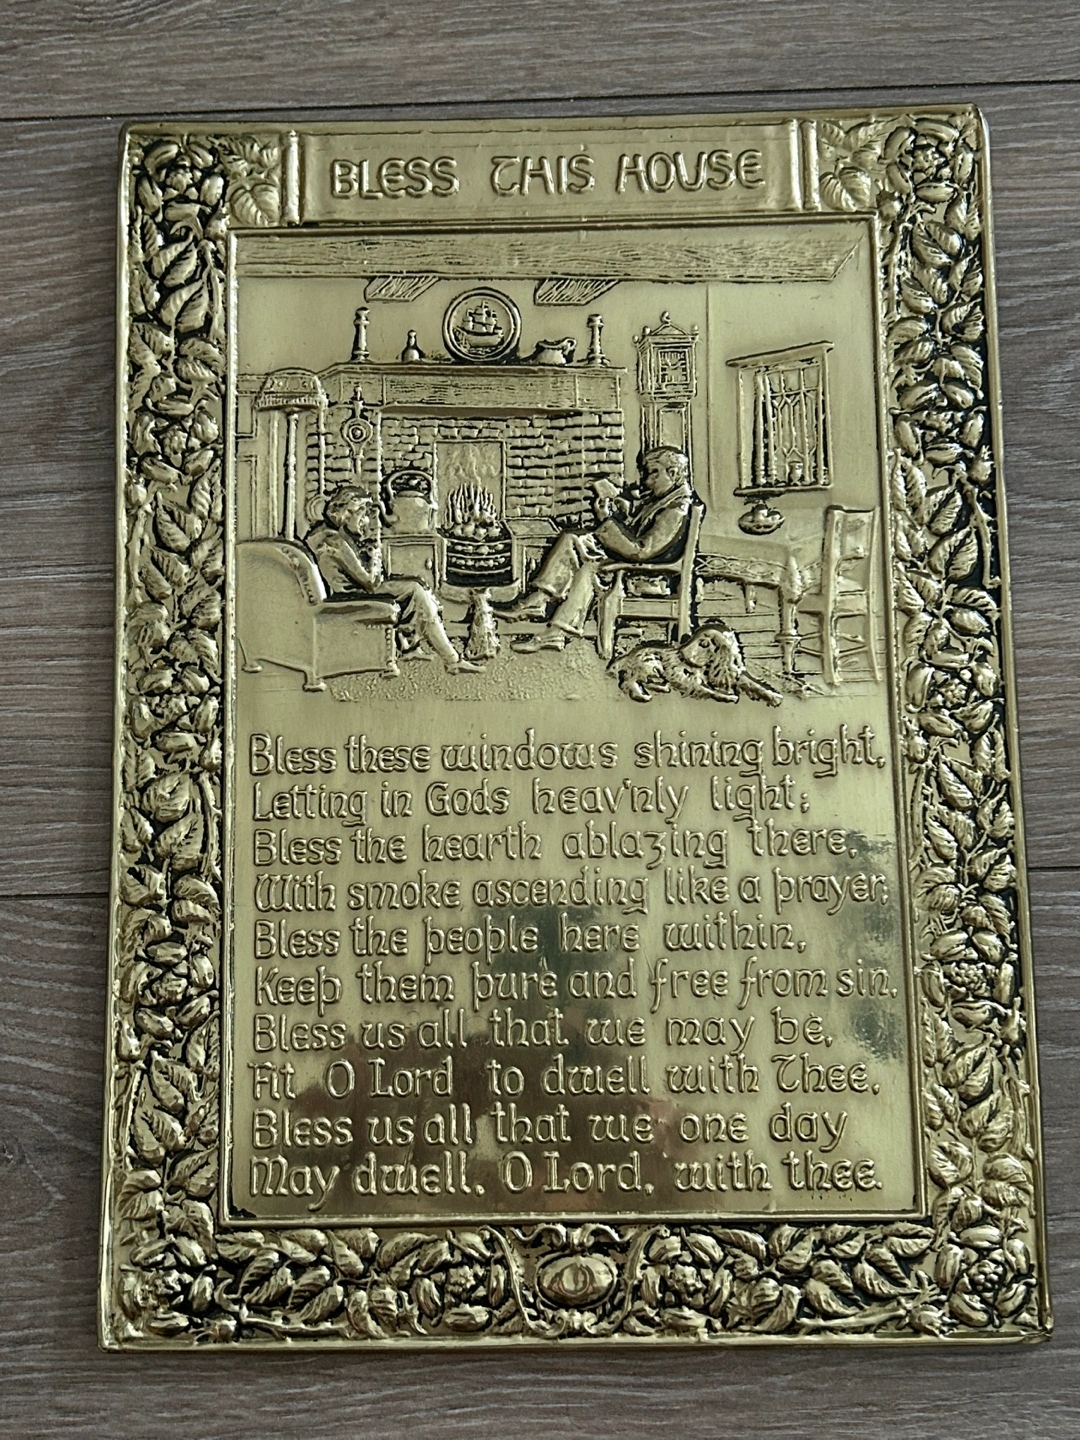 BLESS THIS HOUSE
Bless these windows shining bright,
Letting in Gods heav'nly light;
Bless the hearth ablazing there,
With smoke ascending like a prayer;
Bless the people here within,
Keep them pure and free from sin.
Bless us all that we may be,
Fit O Lord to dwell with Thee.
Bless us all that we one day
May dwell, O Lord, with thee.